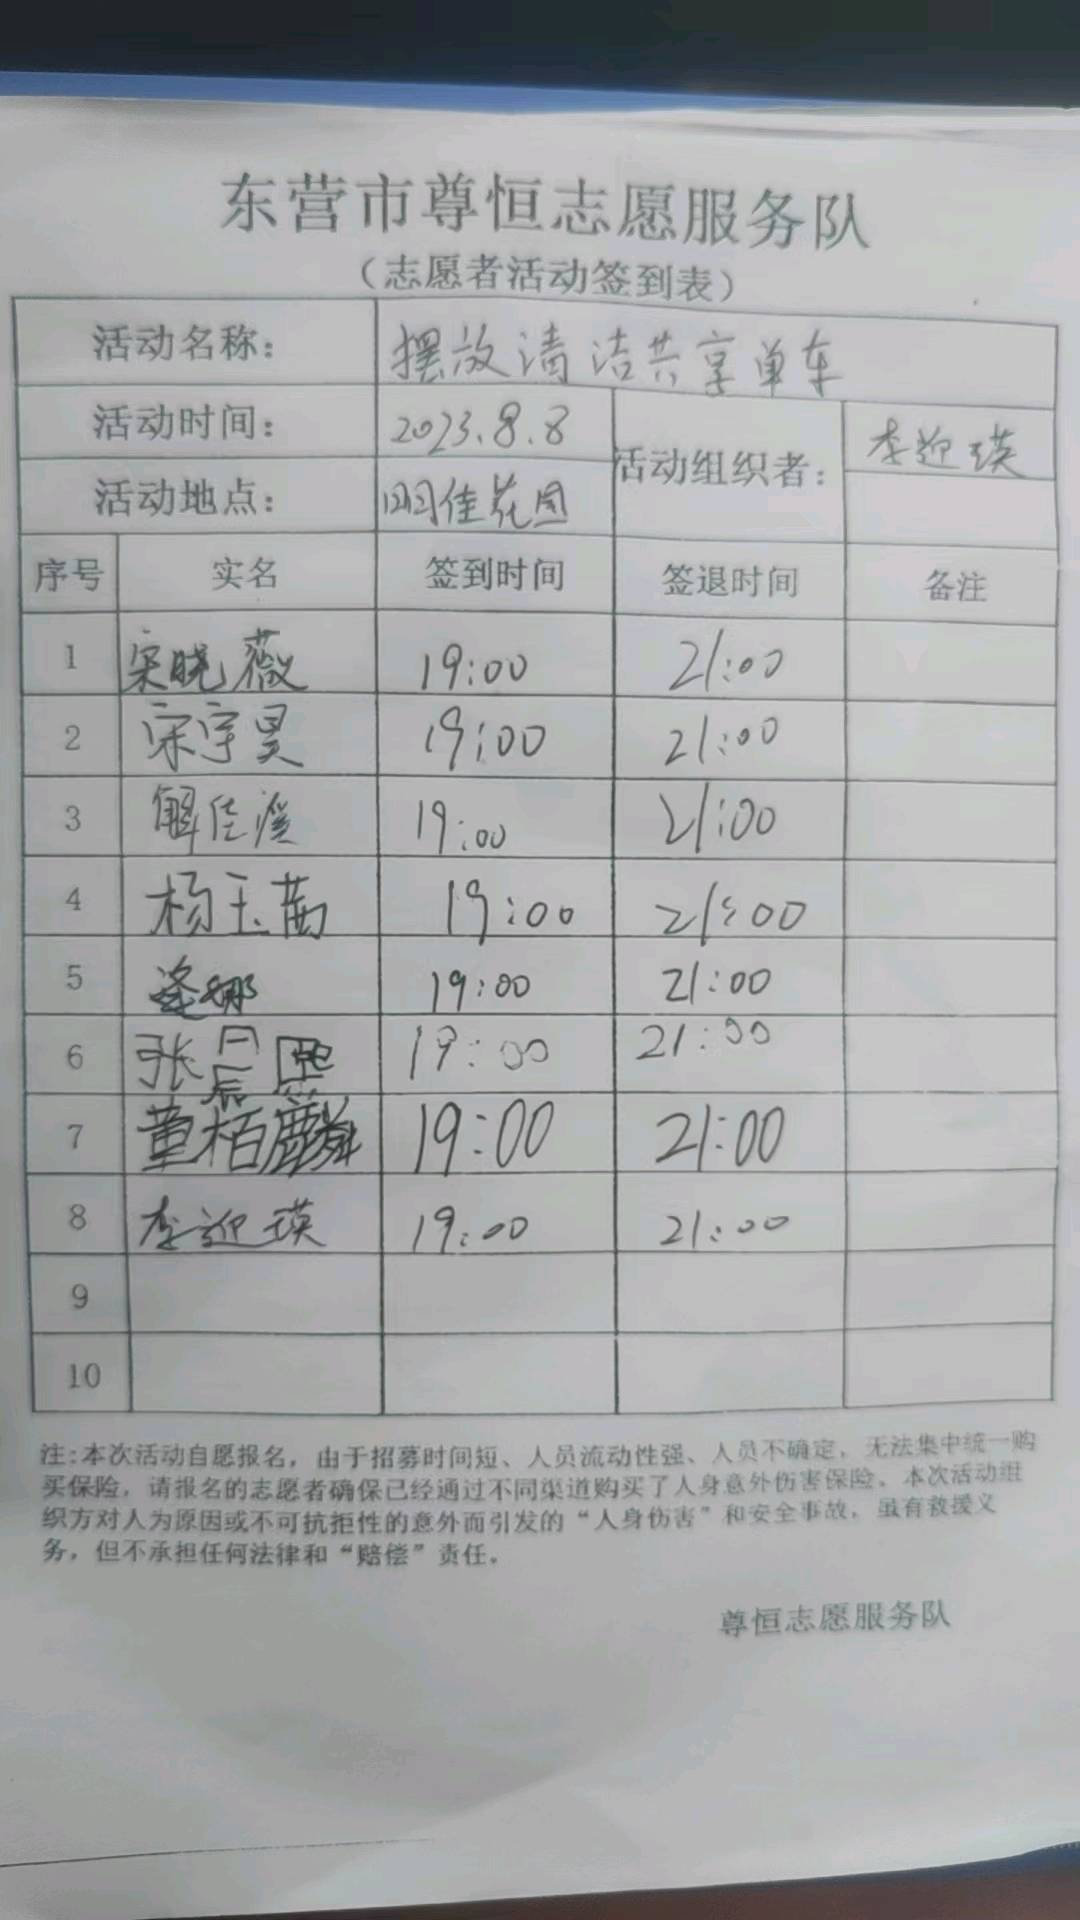 东营市尊恒志愿服务队
（志愿者活动签到表）
活动名称： 摆放清洁共享单车
活动时间： 2023.8.8 活动组织者： 李迎瑛
活动地点： 明佳花园
序号 实名 签到时间 签退时间 备注
1 宋晓薇 19:00 21:00
2 宋宇昊 19:00 21:00
3 解佳滢 19:00 21:00
4 杨玉茜 19:00 21:00
5 逄娜 19:00 21:00
6 张晨熙 19:00 21:00
7 董栢麟 19:00 21:00
8 李迎瑛 19:00 21:00
9
10
注:本次活动自愿报名，由于招募时间短、人员流动性强、人员不确定，无法集中统一购
买保险，请报名的志愿者确保已经通过不同渠道购买了人身意外伤害保险。本次活动组
织方对人为原因或不可抗拒性的意外而引发的“人身伤害”和安全事故，虽有救援义
务，但不承担任何法律和“赔偿”责任。
尊恒志愿服务队